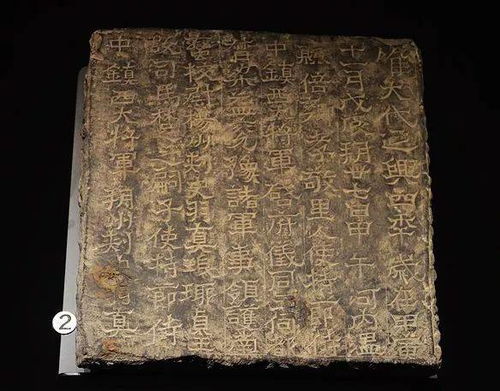 唯大代延興四年歲在甲寅
十一月戊辰朔廿七日甲午河內溫
縣倍鄉孝敬里人使持節侍
中鎮西大將軍啟府儀同三司都
督梁益兗豫諸軍事領護南
蠻校尉揚州刺史羽真琅琊貞王
故司馬楚之嗣子使持節侍
中鎮西大將軍朔州刺史羽真
2